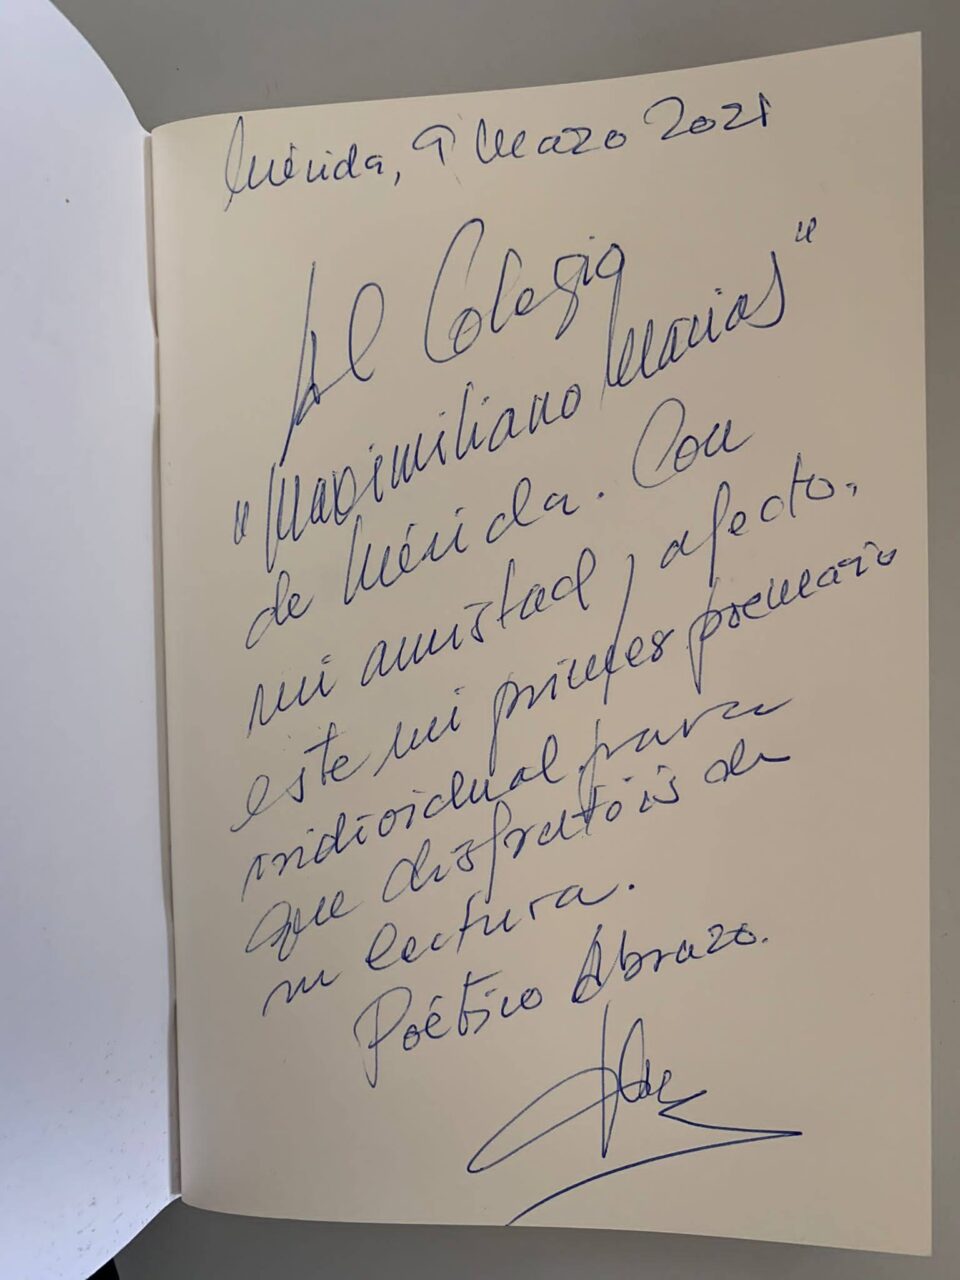 Mérida, 9 Marzo 2021
Al Colegio
"Maximiliano Macías"
de Mérida. Con
mi amistad y afecto,
este mi primer poemario
individual para
que disfrutéis de
su lectura.
Poético Abrazo.